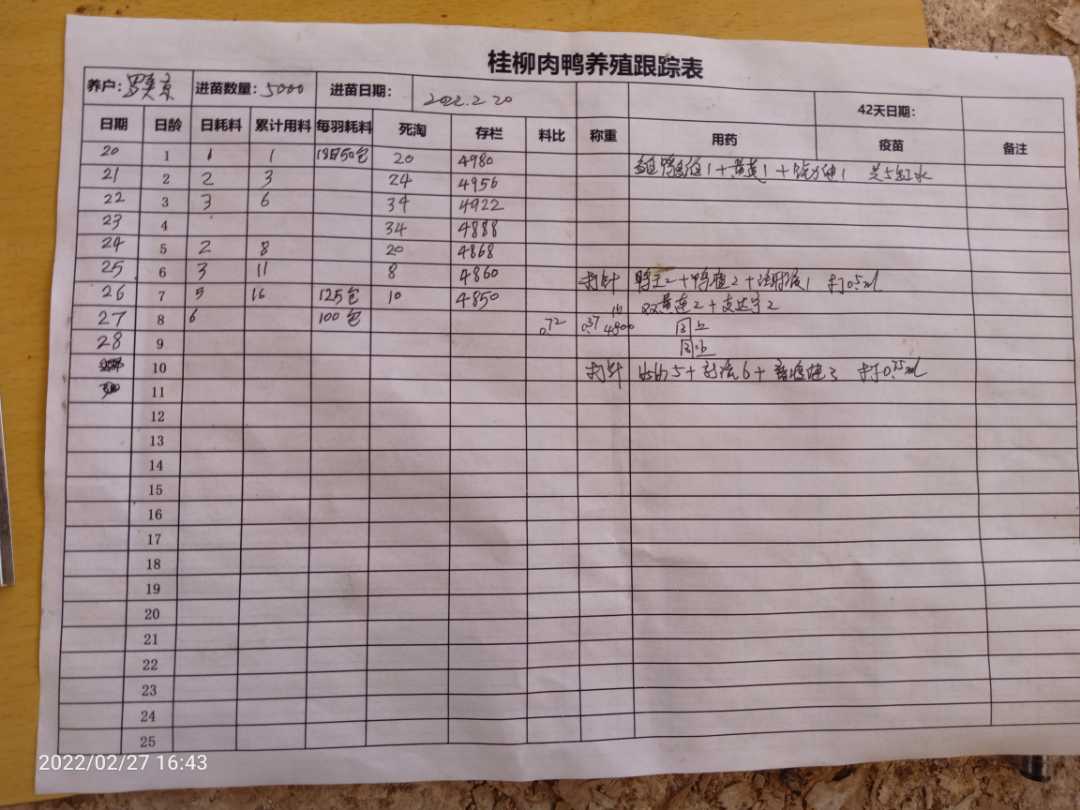 桂柳肉鸭养殖跟踪表
养户: 罗 京 进苗数量: 5000 进苗日期: 2022.2.20 42天日期:
日期 日龄 日耗料 累计用料 每羽耗料 死淘 存栏 料比 称重 用药 疫苗 备注
20 1 1 1 50包 20 4980 1+黄连1+ 1 水
21 2 2 3 24 4956
22 3 3 6 34 4922
23 4 34 4888
24 5 2 8 20 4868
25 6 3 11 8 4860 打针 鸭王2+鸭 2+注射液1 打0.5ml
26 7 5 16 125包 10 4850 双黄连2+ 2
27 8 6 100包 0.72 0.37 4800 同上
28 9 同上
10 打针 5+ 6+ 3 打0.75ml
11
12
13
14
15
16
17
18
19
20
21
22
23
24
25
2022/02/27 16:43